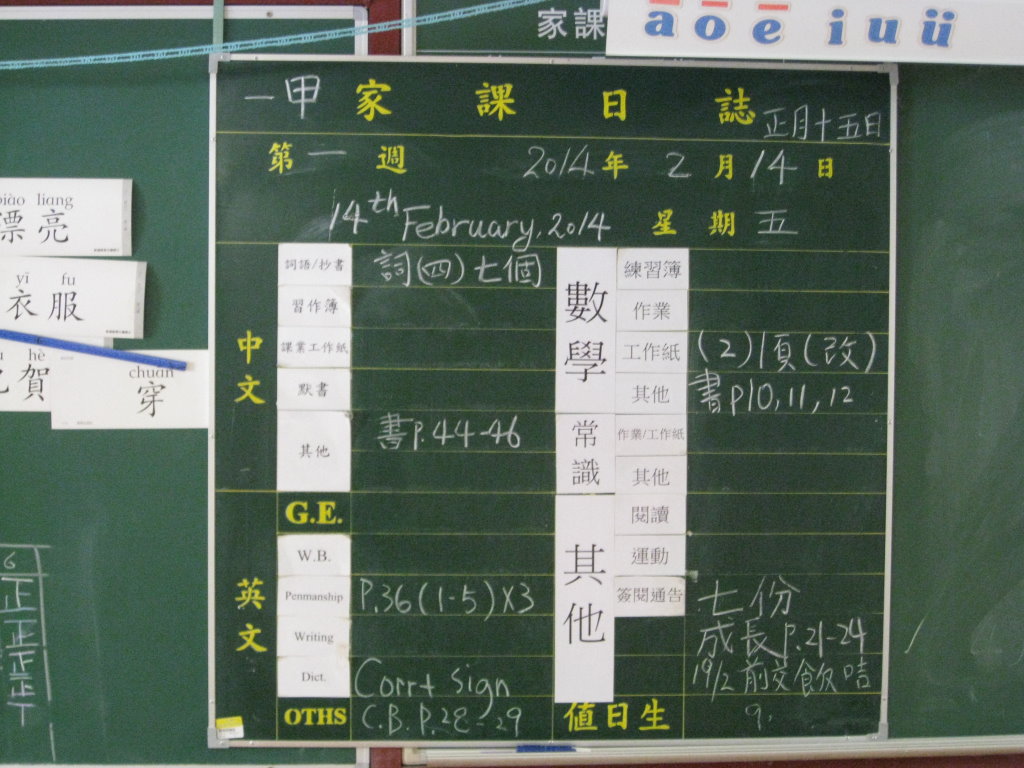 家課
a o e i u ü
一甲 家課日誌 正月十五日
第一週 2014年2月14日
14th February, 2014 星期五
中文
詞語/抄書 詞(四)七個
習作簿
課業工作紙
默書
其他 書P.44-46
英文
G.E.
W.B.
Penmanship P.36(1-5)X3
Writing
Dict. Corr+ Sign
OTHS C.B. P.28-29
數學
練習簿
作業
工作紙 (2)1頁(改)
其他 書P10,11,12
常識
作業/工作紙
其他
其他
閱讀
運動
簽閱通告 七份
成長P.21-24
19/2前交飲咭
值日生 9.
piào liang
漂亮
yī fu
衣服
hè
賀
chuān
穿
6
正
正
正
正